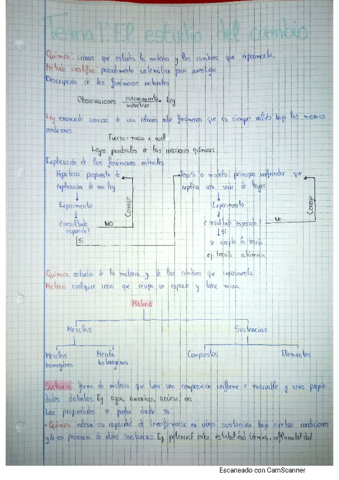 Tema 1: El estudio del cambio
Química: ciencia que estudia la materia y los cambios que experimenta.
Método científico: procedimiento sistemático para investigar
Descripción de los fenómenos naturales
Observaciones razonamiento inductivo Ley
Ley enunciado conciso de una relación entre fenómenos que es siempre válido bajo las mismas
condiciones
Fuerza = masa x acel.
Leyes ponderales de las reacciones químicas
Explicación de los fenómenos naturales
Hipótesis propuesta de explicación de una ley
Experimento
¿resultado esperado?
NO
Corregir
SI
Teoría o modelo: principio unificador que explica una serie de leyes
Experimento
¿resultado esperado?
No
Corregir
SI
se acepta la teoría
ej. teoría atómica
Química estudio de la materia y de los cambios que experimenta
Materia cualquier cosa que ocupa un espacio y tiene masa.
Materia
Mezclas
Sustancias
Mezclas homogéneas
Compuestos
Elementos
Sustancia forma de materia que tiene una composición uniforme e invariable y unas propie-
dades distintas. Ej. agua, amoniaco, azúcar, oro
Las propiedades se pueden dividir en:
- Química indican su capacidad de transformarse en otras sustancias bajo ciertas condiciones
y/o en presencia de otras sustancias. Ej. potencial redox, estabilidad térmica, inflamabilidad
Escaneado con CamScanner